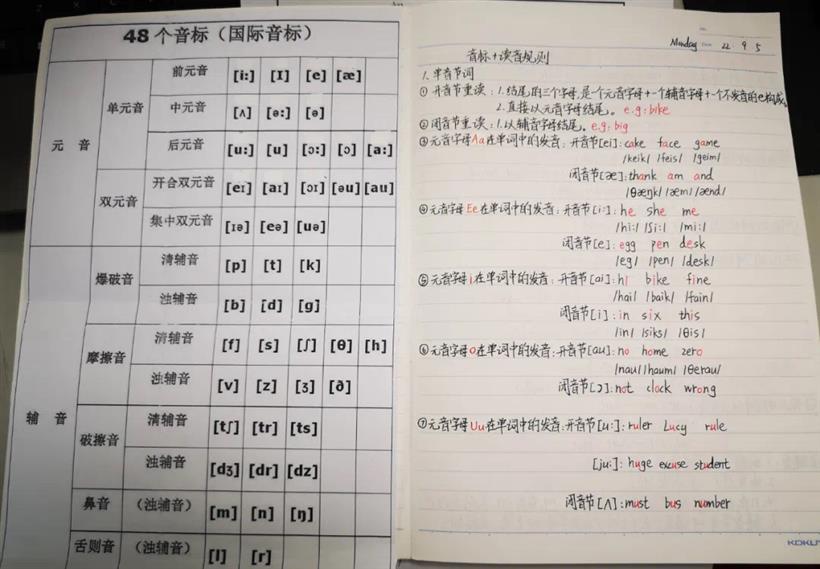 48个音标（国际音标）
元 音
单元音
前元音 [i:] [ɪ] [e] [æ]
中元音 [ʌ] [ə:] [ə]
后元音 [u:] [u] [ɔ:] [ɔ] [a:]
双元音
开合双元音 [eɪ] [aɪ] [ɔɪ] [əu] [au]
集中双元音 [ɪə] [eə] [uə]
辅 音
爆破音
清辅音 [p] [t] [k]
浊辅音 [b] [d] [g]
摩擦音
清辅音 [f] [s] [ʃ] [θ] [h]
浊辅音 [v] [z] [ʒ] [ð]
破擦音
清辅音 [tʃ] [tr] [ts]
浊辅音 [dʒ] [dr] [dz]
鼻音 （浊辅音） [m] [n] [ŋ]
舌则音 （浊辅音） [l] [r]
Munday 22 9 5
音标+读音规则
1. 单音节词
① 开音节重读：1.结尾的三个字母,是一个元音字母+一个辅音字母+一个不发音的e构成。
2.直接以元音字母结尾。e.g:bike
② 闭音节重读：1.以辅音字母结尾。e.g:big
③ 元音字母Aa在单词中的发音：开音节[ei]: cake face game
/keik/ /feis/ /geim/
闭音节[æ]: thank am and
/θæŋk/ /æm/ /ænd/
④ 元音字母Ee在单词中的发音：开音节[i:]: he she me
/hi:/ /ʃi:/ /mi:/
闭音节[e]: egg pen desk
/eg/ /pen/ /desk/
⑤ 元音字母i在单词中的发音：开音节[ai]: hi bike fine
/hai/ /baik/ /fain/
闭音节[i]: in six this
/in/ /siks/ /θis/
⑥ 元音字母o在单词中的发音：开音节[au]: no home zero
/nau/ /haum/ /θerau/
闭音节[ɔ]: not clock wrong
⑦ 元音字母Uu在单词中的发音：开音节[u:]: ruler Lucy rule
[ju:]: huge excuse student
闭音节[ʌ]: must bus number